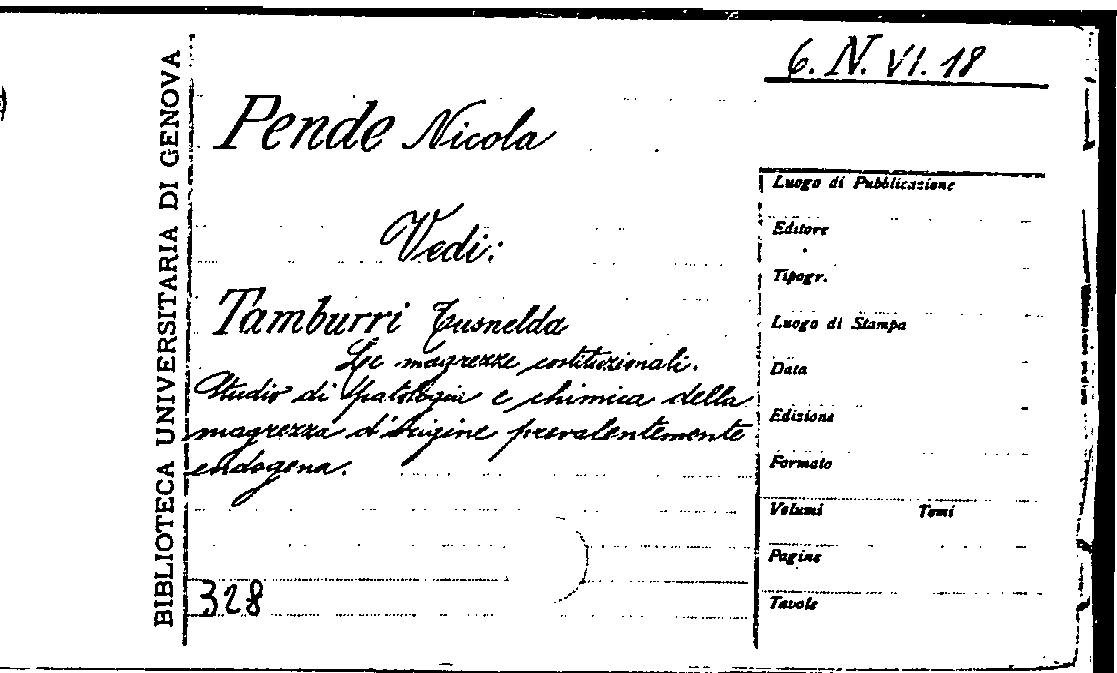 6. N. VI. 18
BIBLIOTECA UNIVERSITARIA DI GENOVA
Pende Nicola
Vedi:
Tamburri Tusnelda
Le magrezze costituzionali.
Studio di patologia e chimica della
magrezza d'origine prevalentemente
endogena.
328
Luogo di Pubblicazione
Editore
Tipogr.
Luogo di Stampa
Data
Edizione
Formato
Volumi Tomi
Pagine
Tavole